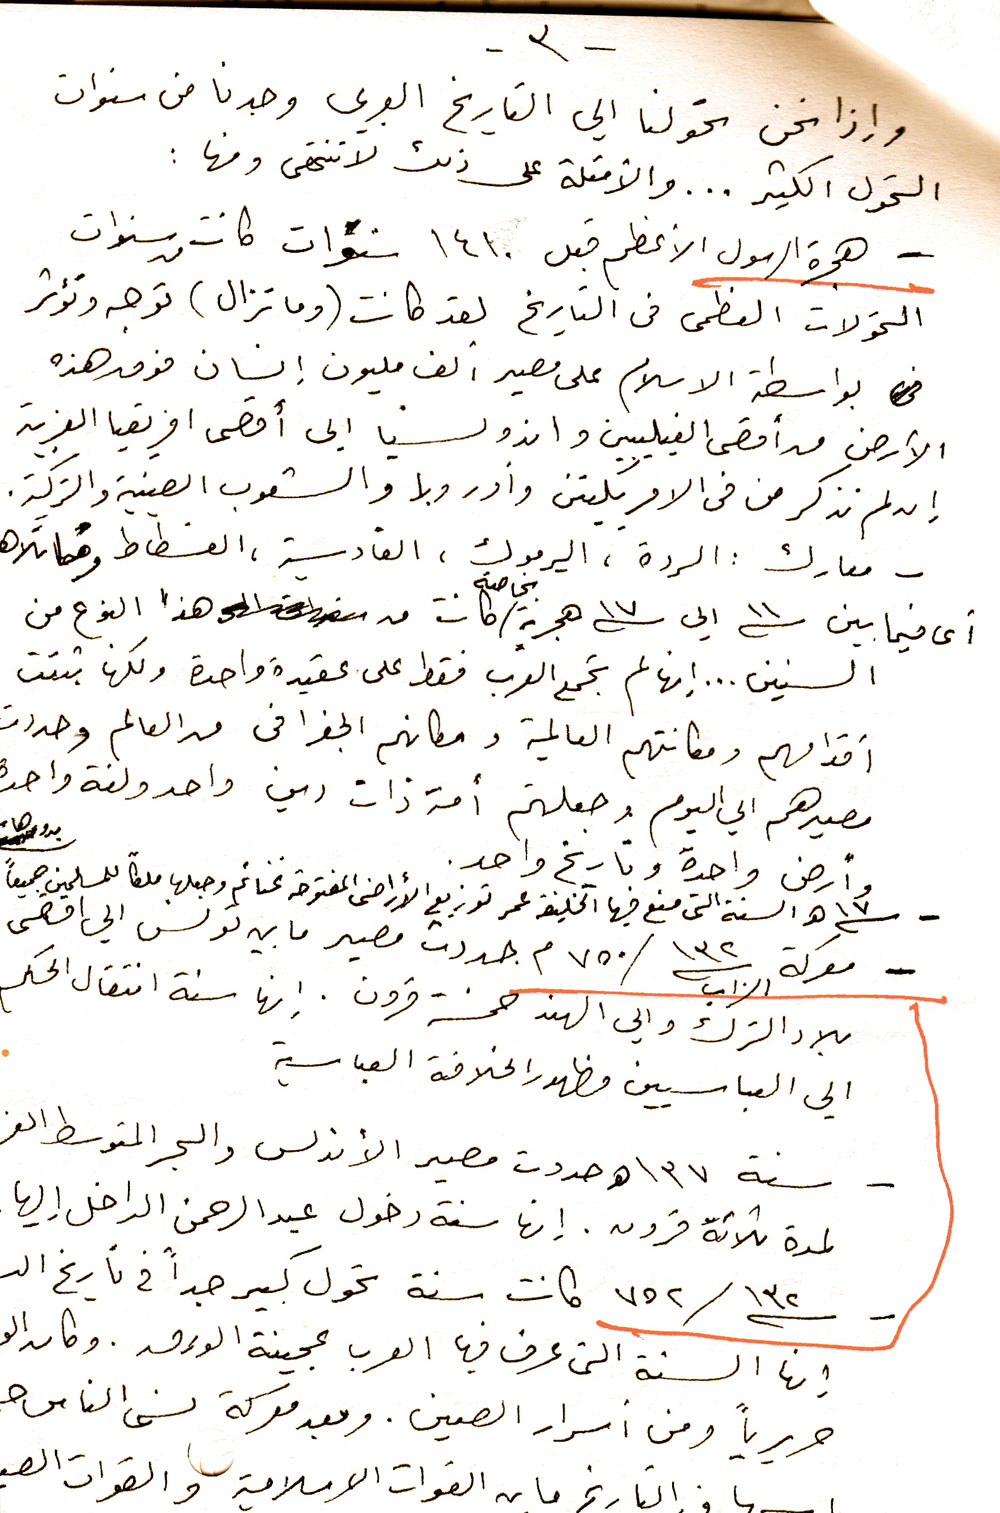 - ٣ -
واذا نحن تحولنا الي التاريخ العربي وجدنا من سنوات
التحول الكثير ... والأمثلة على ذلك لا تنتهى ومنها :
- هجرة الرسول الأعظم قبل ١٤١٠ سنوات كانت من سنوات
التحولات العظمى فى التاريخ لقد كانت (وما تزال) توجه وتؤثر
بواسطة الاسلام على مصير ألف مليون إنسان فوق هذه
الأرض من أقصى الفيليبين واندونسيا الى أقصى افريقيا الغربية
إن لم نذكر من فى الامريكيتين وأوروبا والشعوب الصينية والتركية .
- معارك : الردة ، اليرموك ، القادسية ، الفسطاط
أى فيما بين ١١ الي ١٧ هجرية / كانت بخاصة من هذا النوع من
السنين ... إنها لم تجمع العرب فقط على عقيدة واحدة ولكنها ثبتت
أقدامهم ومكانتهم العالمية ومكانهم الجغرافى من العالم وحددت
مصيرهم الي اليوم وجعلتهم أمة ذات دين واحد ولغة واحدة
وأرض واحدة وتاريخ واحد .
- ١٧ هـ السنة التى منع فيها الخليفة عمر توزيع الأراضى المفتوحة غنائم وجعلها ملكاً للمسلمين جميعاً
- معركة الزاب ١٣٢ / ٧٥٠ م حددت مصير ما بين تونس الي اقصى
بلاد الترك والي الهند خمسة قرون . إنها سنة انتقال الحكم
الي العباسيين وظهور الخلافة العباسية
- سنة ١٣٧ هـ حددت مصير الأندلس والبحر المتوسط
لمدة ثلاثة قرون . إنها سنة دخول عبد الرحمن الداخل إليها .
- ١٣٢ / ٧٥٢ كانت سنة تحول كبير جداً في تاريخ
إنها السنة التى عرف فيها العرب عجينة الورق . وكان
حريرياً ومن أسرار الصين . وبعد معركة
فى التاريخ ما بين القوات الاسلامية والقوات